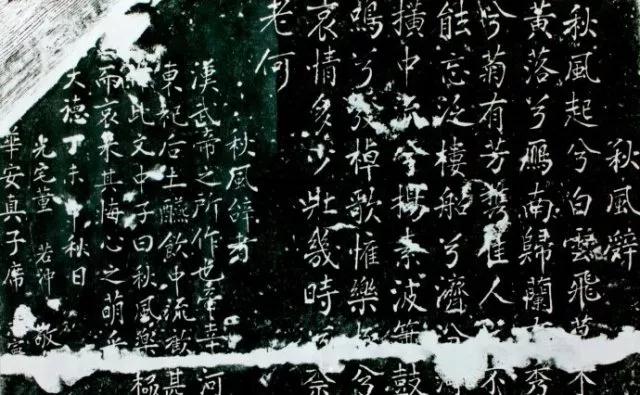 秋風辭
秋風起兮白雲飛草木
黃落兮鴈南歸蘭有秀
兮菊有芳攜佳人兮不
能忘泛樓船兮濟汾河
橫中流兮揚素波簫鼓
鳴兮發棹歌懽樂極兮
哀情多少壯幾時兮奈
老何
秋風辭者
漢武帝之所作也帝幸河
東祀后土醼飲中流歡甚
此文中子曰秋風樂極
而哀來其悔心之萌乎
大德丁未中秋日
董 若沖 敬
華安真子席